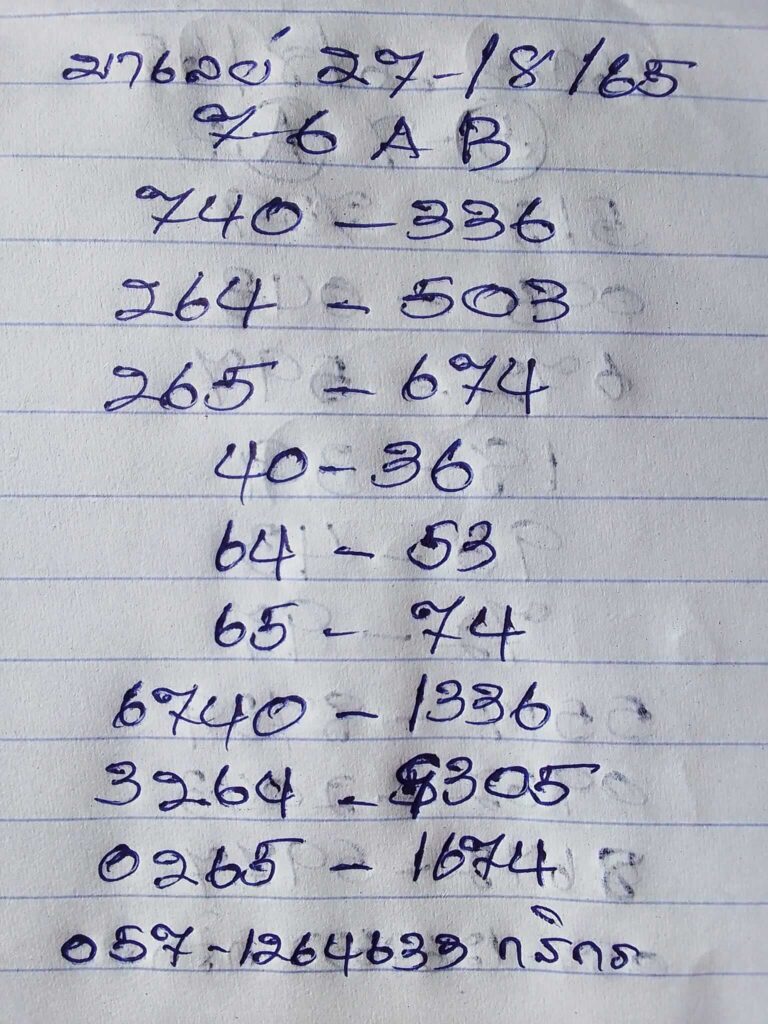 มาเลย์ 27-/8/65
76 A B
740 - 336
264 - 503
265 - 674
40 - 36
64 - 53
65 - 74
6740 - 1336
3264 - 5305
0265 - 1674
057-1264633